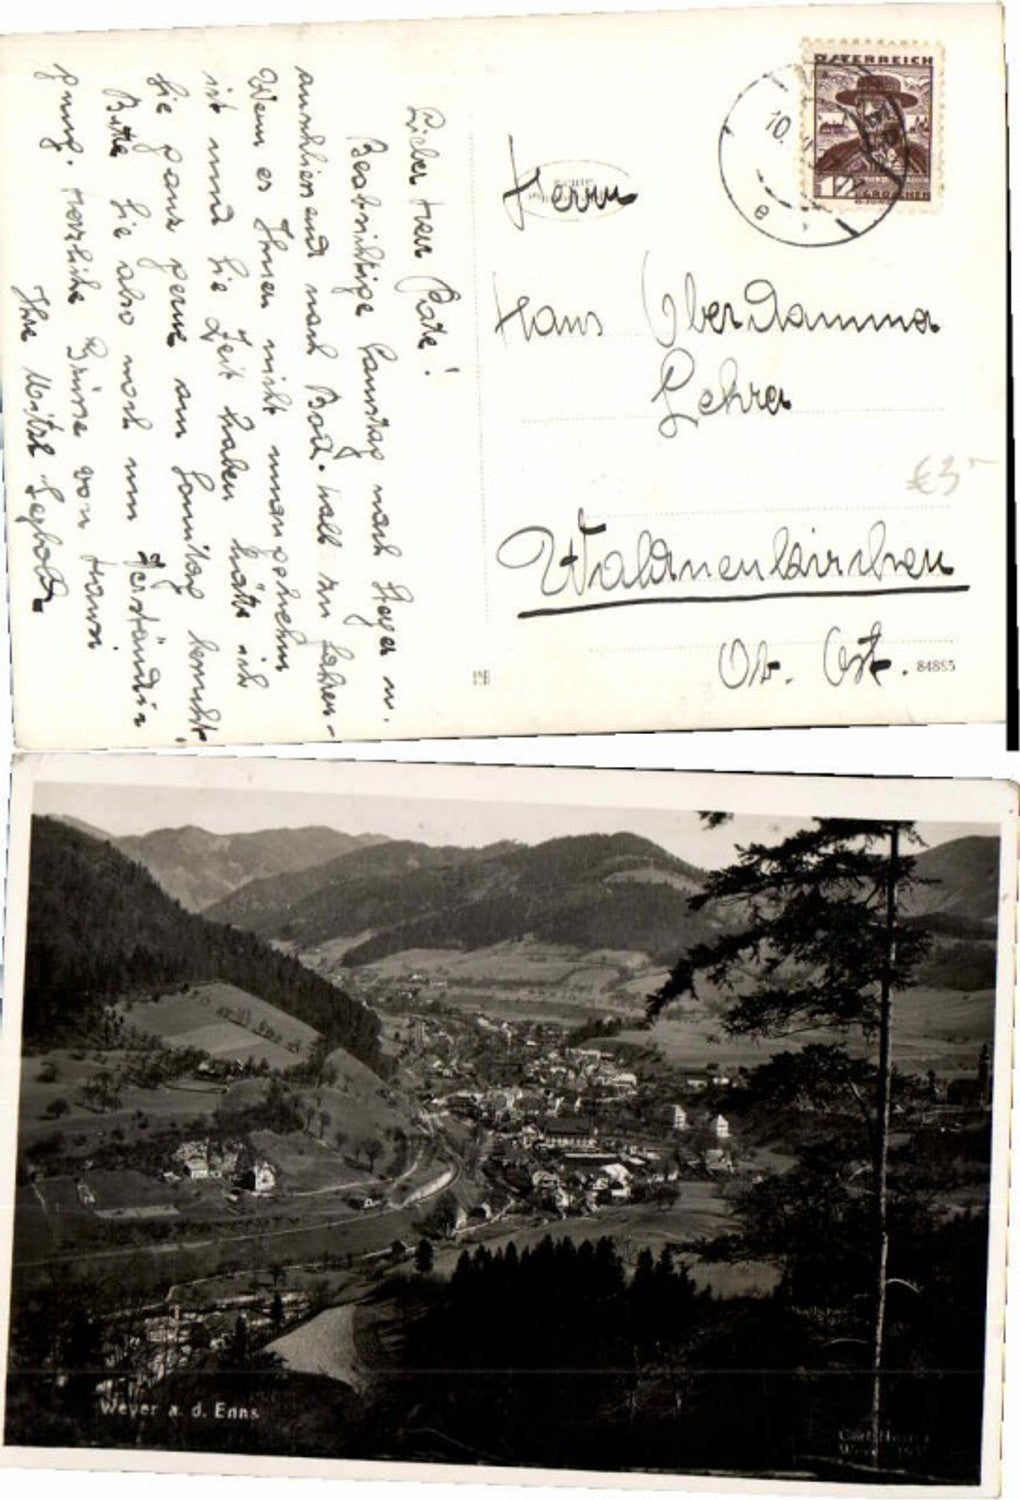 Lieber Herr Pate!
Beabsichtige Samstag nach Steyer u.
anschliesend nach Bad. Hall zu fahren-
Wenn es Ihnen nicht unangenehm
ist und Sie Zeit haben hätte ich
Sie ganz gerne am Sonntag besucht.
Bitte Sie also noch um Verständi-
gung. Herzliche Grüsse von Hanni
Ihre Mitzi
ÖSTERREICH
12
GROSCHEN
10.
e
Herrn
Hans Oberdammer
Lehrer
€3-
Waldneukirchen
Ob. Öst.
84865
Weyer a. d. Enns